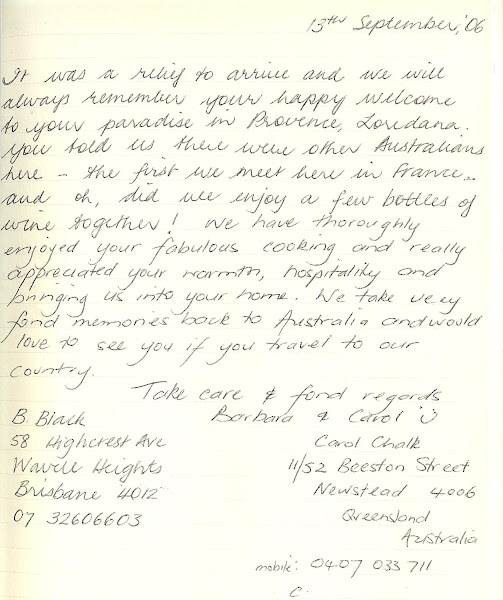 13th September, '06
It was a relief to arrive and we will
always remember your happy welcome
to your paradise in Provence, Loredana.
You told us there were other Australians
here - the first we meet here in France..
and oh, did we enjoy a few bottles of
wine together! We have thoroughly
enjoyed your fabulous cooking and really
appreciated your warmth, hospitality and
bringing us into your home. We take very
fond memories back to Australia and would
love to see you if you travel to our
country.
Take care & fond regards
Barbara & Carol
B. Black
58 Highcrest Ave
Wavell Heights
Brisbane 4012
07 32606603
Carol Chalk
11/52 Beeston Street
Newstead 4006
Queensland
Australia
mobile: 0407 033 711
C.